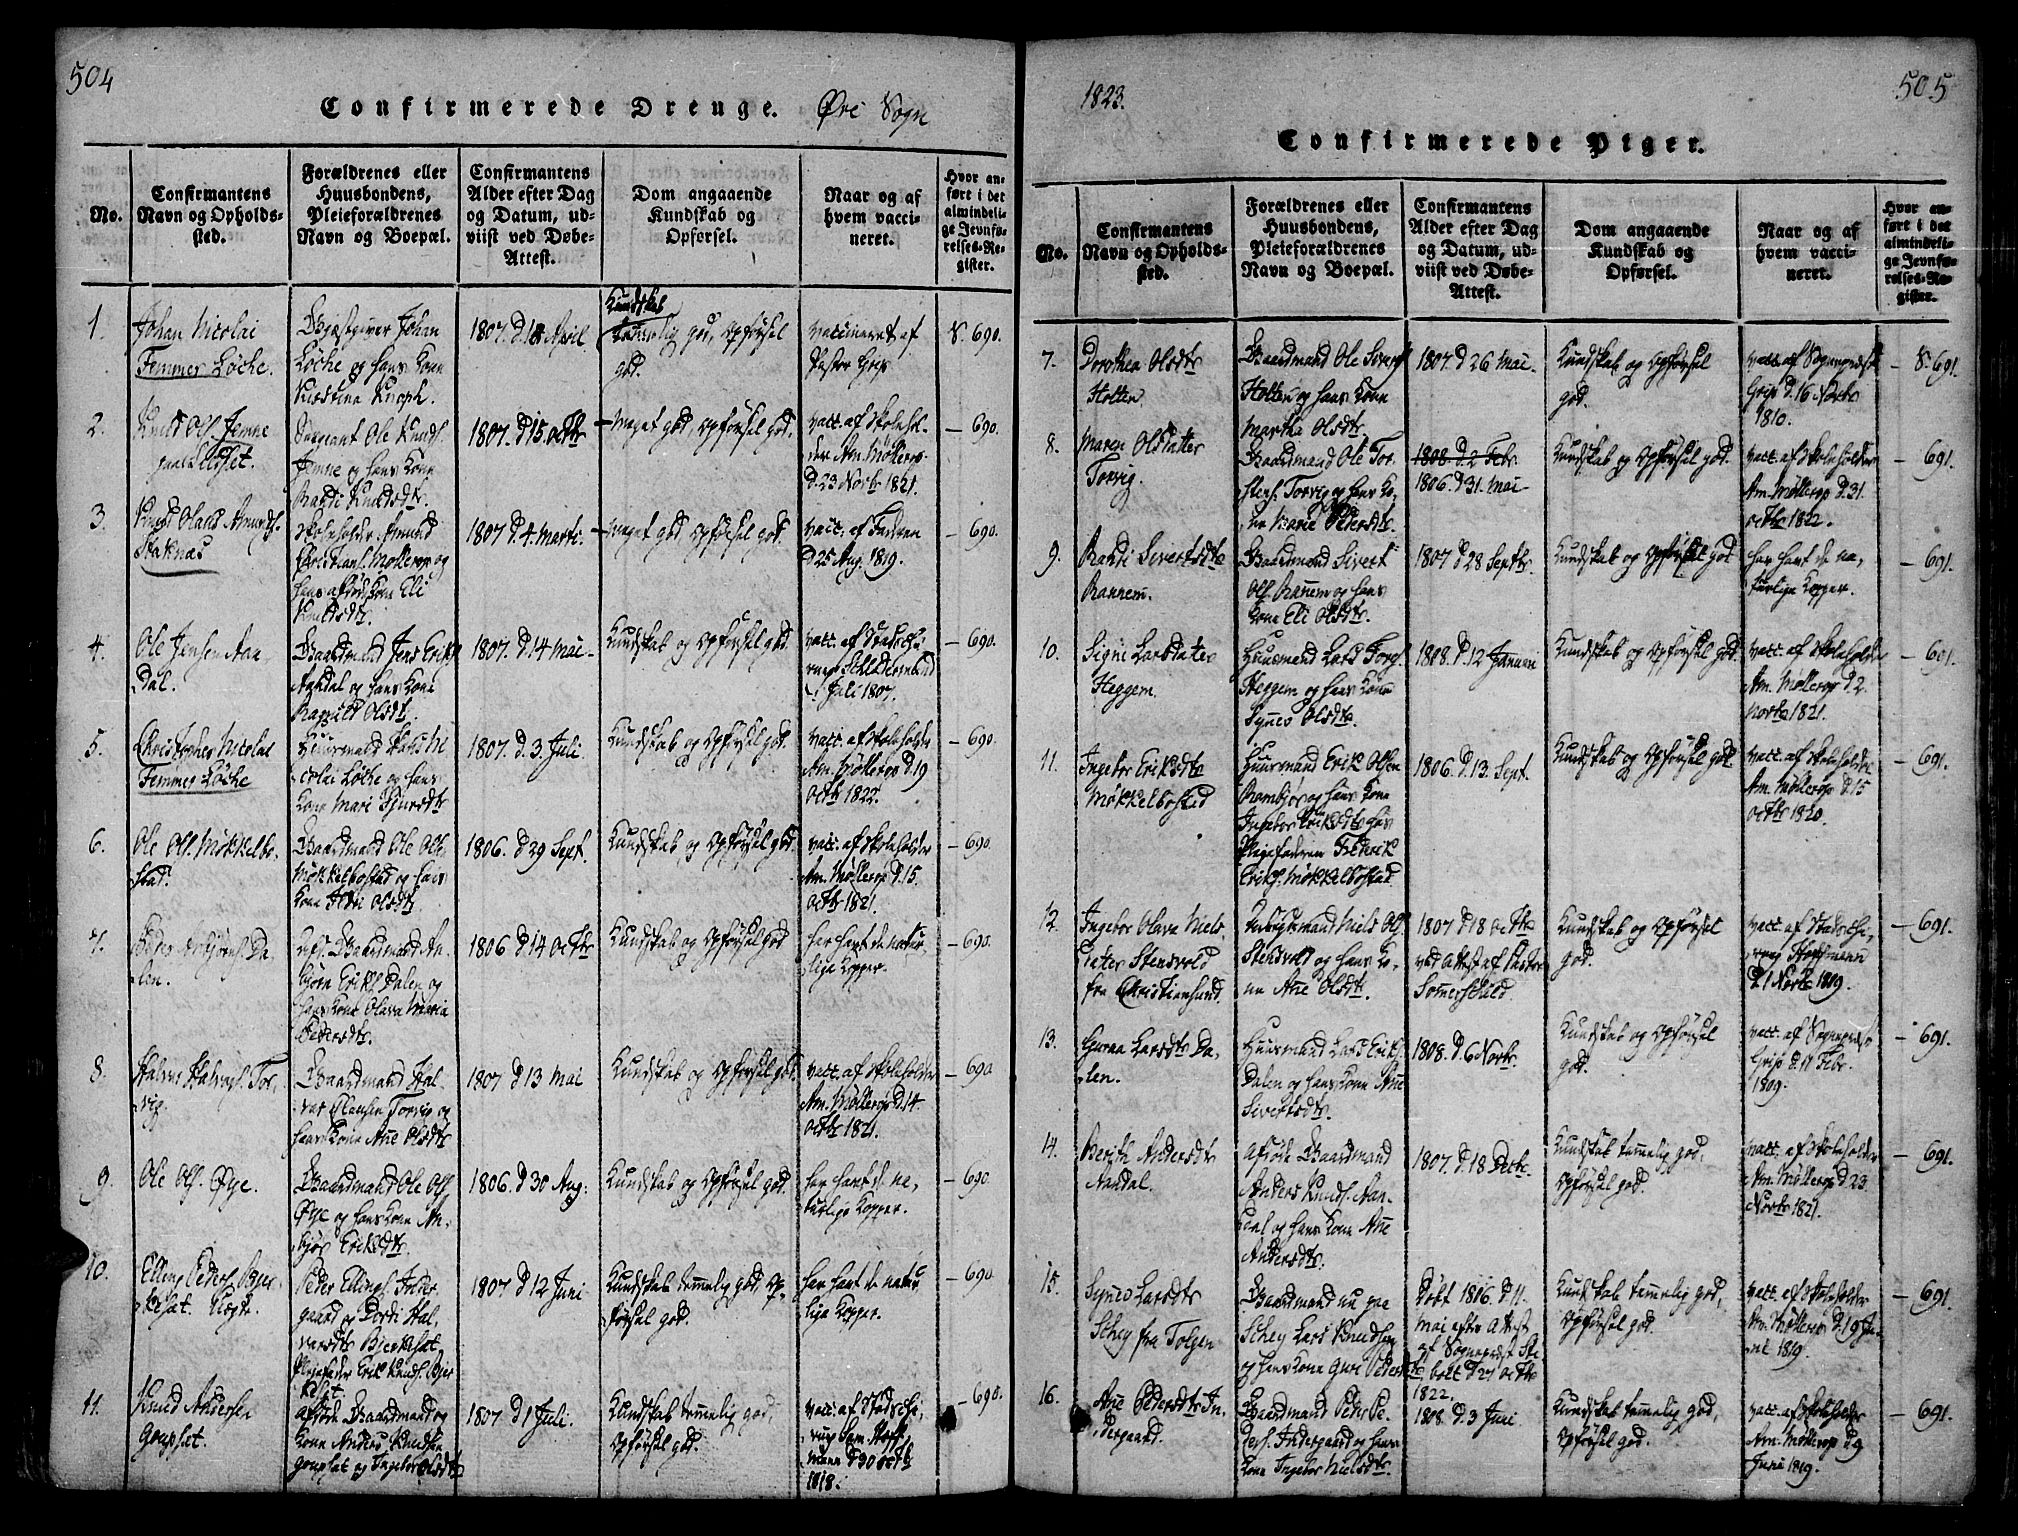 504
Confirmerede Drenge. Øre Sogn
No.
Confirmantens
Navn og Opholds-
sted.
Forældrenes eller
Huusbondens,
Pleieforældrenes
Navn og Boepæl.
Confirmantens
Alder efter Dag
og Datum, ud-
viist ved Døbe-
Attest.
Dom angaaende
Kundskab og
Opførsel.
Naar og af
hvem vacci-
neret.
Hvor an-
ført i det
almindeli-
ge Jevnfø-
relses-Re-
gister.
1.
Johan Nicolai
Femmer Løche.
Giæstgiver Johan
Løche og hans Kone
Kirstina Knoph.
1807. d. 18 April.
Kundskab
god, Opførsel
god.
vaccineret af
Pastor Grip
S. 690.
2.
Knud Ols. Jemne
Sergeant Ole Knuds.
Jemne og hans Kone
Randi Knudsdtr.
1807. d. 15. Octbr
meget god, Opførsel god.
vacc. af Skolehol-
der Am. Møllerop
d. 23 Novbr 1821.
– 690.
3.
Knud Olaus Amunds.
Staknæs
Skoleholder Amund
Christians. Møllerop og
hans afdøde Kone Eli
Knudsdtr.
1807 d. 4. Marts.
meget god Opførsel god.
vacc. af
d. 25 Aug. 1819.
– 690.
4.
Ole Jensen Aan-
dal.
Gaardmand Jens Eriks.
Aandal og hans Kone
Ragnild Olsdtr.
1807. d. 14 Mai
Kundskab og Opførsel god.
vacc. af Stadschi-
rurg
Juli 1807.
– 690.
5.
Christopher Nicolai
Femmer Løche
Huusmand
Nicolai Løche og hans
Kone Mari Siursdtr
1807. d. 3. Juli
Kundskab og Opførsel god.
vacc. af Skoleholder
Am. Møllerop d. 19
Octbr 1822.
– 690.
6.
Ole Ols. Møkkelbo-
stad.
Gaardmand Ole Ols.
Møkkelbostad og hans
Kone Olsdtr.
1806. d. 29 Sept.
Kundskab og Opførsel god.
vacc. af Skoleholder
Am. Møllerop d. 15.
Octbr 1821.
– 690.
7.
Peder Anbjørns. Da-
len.
Gaardmand An-
bjørn Eriks. Dalen og
hans Kone Olava Maria
Pedersdtr.
1806 d. 14 Octbr
Kundskab og Opførsel god
har havt de natur-
lige Kopper.
– 690.
8.
Halvor Halvors. Tor-
vig.
Gaardmand Hal-
vor Olausen Torvig og
hans Kone Ane Olsdtr
1807 d. 13 Mai
Kundskab og Opførsel god
vacc. af Skoleholder
Am. Møllerop d. 14.
Octbr 1821.
– 690
9.
Ole Ols. Øye.
Gaardmand Ole Ols.
Øye og hans Kone An-
bjør Eriksdtr.
1806. d. 30 Aug:
Kundskab og Opførsel god.
har havt de na-
turlige Kopper.
– 690.
10.
Elling Peders. Bjer-
keset.
Peder Ellings. Inder-
gaard og Dordi Hal-
varsdtr Bjerkeset.
Pleiefader Erik Knuds. Bjer-
keset.
1807 d. 12 Juni
Kundskab temmelig god, Op-
førsel god.
har havt de natur-
lige Kopper.
– 690.
11.
Knud Andersen
Goupset.
afdøde Gaardmand og
Kone Anders Knudsen
Goupset og Ingebor Olsdtr
1807. d. 1 Juli.
Kundskab temmelig god,
Opførsel god.
vacc. af Stadschi-
rurg Sam. Hoff-
mann d. 30 Octb
1818.
– 690.
1823.
505
Confirmerede Piger.
No.
Confirmantens
Navn og Opholds-
sted.
Forældrenes eller
Huusbondens,
Pleieforældrenes
Navn og Boepæl.
Confirmantens
Alder efter Dag
og Datum, ud-
viist ved Døbe-
Attest.
Dom angaaende
Kundskab og
Opførsel.
Naar og af
hvem vacci-
neret.
Hvor an-
ført i det
almindeli-
ge Jevnfø-
relses-Re-
gister.
7.
Dorothea Olsdtr
Holten.
Gaardmand Ole Siverts.
Holten og hans Kone
Martha Olsdtr.
1807 d. 26 Mai
Kundskab og Opførsel
god.
vacc. af Sognepræst
Grip d. 16 Novbr
1810.
– S. 691.
8.
Maren Olsdatter
Torvig.
Gaardmand Ole Tor-
stens. Torvig og hans Ko-
ne Marie Pedersdtr.
1808. d. 2 Febr.
1806. d. 31. Mai
Kundskab og Opførsel god.
vacc. af Skoleholder
Am. Møllerop d. 31.
Octbr 1822.
– 691.
9.
Randi Sivertsdtr
Rannem.
Gaardmand Sivert
Ols. Ranem og hans
Kone Eli Olsdtr.
1807 d. 28 Septbr.
Kundskab og Opførsel god
har havt de na-
turlige Kopper.
– 691.
10.
Signi Larsdatter
Heggem.
Huusmand Lars Tores.
Heggem og hans Kone
Synev Olsdtr.
1808. d. 12 Januari
Kundskab og Opførsel god.
vacc. af Skoleholder
Am. Møllerop d. 2.
Novbr 1821.
– 691.
11.
Ingebor Eriksdtr
Møkkelbostad
Huusmand Erik Olsen
Rambjør og hans Kone
Ingebor Eriksdtr hos
Pleiefaderen Fredrik
Eriks. Møkkelbostad.
1806. d. 13. Sept.
Kundskab og Opførsel god.
vacc. af Skoleholder
Am. Møllerop d. 15
Octbr 1820.
– 691.
12.
Ingebor Olava Niels-
datter Stensvold
fra Christiansund.
Niels Ols.
Stensvold og hans Ko-
ne Ane Olsdtr.
1807 d. 18 Octbr
ved Attest af Pastor
Sommerschild.
Kundskab og Opførsel
god.
vacc. af Stadschi-
rurg Hoffmann
d. 1 Novbr 1819.
– 691.
13.
Guroe Larsdtr Da-
len.
Huusmand Lars Eriks.
Dalen og hans Kone Ane
Sivertsdtr.
1808. d. 6 Novbr.
Kundskab og Opførsel
god.
vacc. af Sognepræst
Grip d. 11 Febr.
1809.
– 691.
14.
Berith Andersdtr
Aandal.
Afdøde Gaardmand
Anders Knuds. Aan-
dal og hans Kone Ane
Andersdtr.
1807. d. 18 Decbr.
Kundskab temmelig god,
Opførsel god.
vacc. af Skoleholder
Am. Møllerop d. 23
Novbr 1821.
– 691.
15.
Synev Larsdtr
Schey fra Tolgen
Gaardmand nu paa
Schey Lars Knudsen
og hans Kone Guri Pedersdtr
Døbt 1806. d. 11.
Mai efter Attest
af Sognepræst
d. 27 Octbr
1822.
Kundskab temmelig god,
Opførsel god.
vacc. af Skoleholder
Am. Møllerop d. 19 Ju-
ni 1819.
– 691.
16.
Ane Pedersdtr In-
dergaard.
Gaardmand Peder Pe-
ders. Indergaard og hans
Kone Ingebor Nielsdtr.
1808. d. 3 Juni
Kundskab temmelig god,
Opførsel god.
vacc. af Skoleholder
Am. Møllerop d. 9
Juni 1819.
– 691.